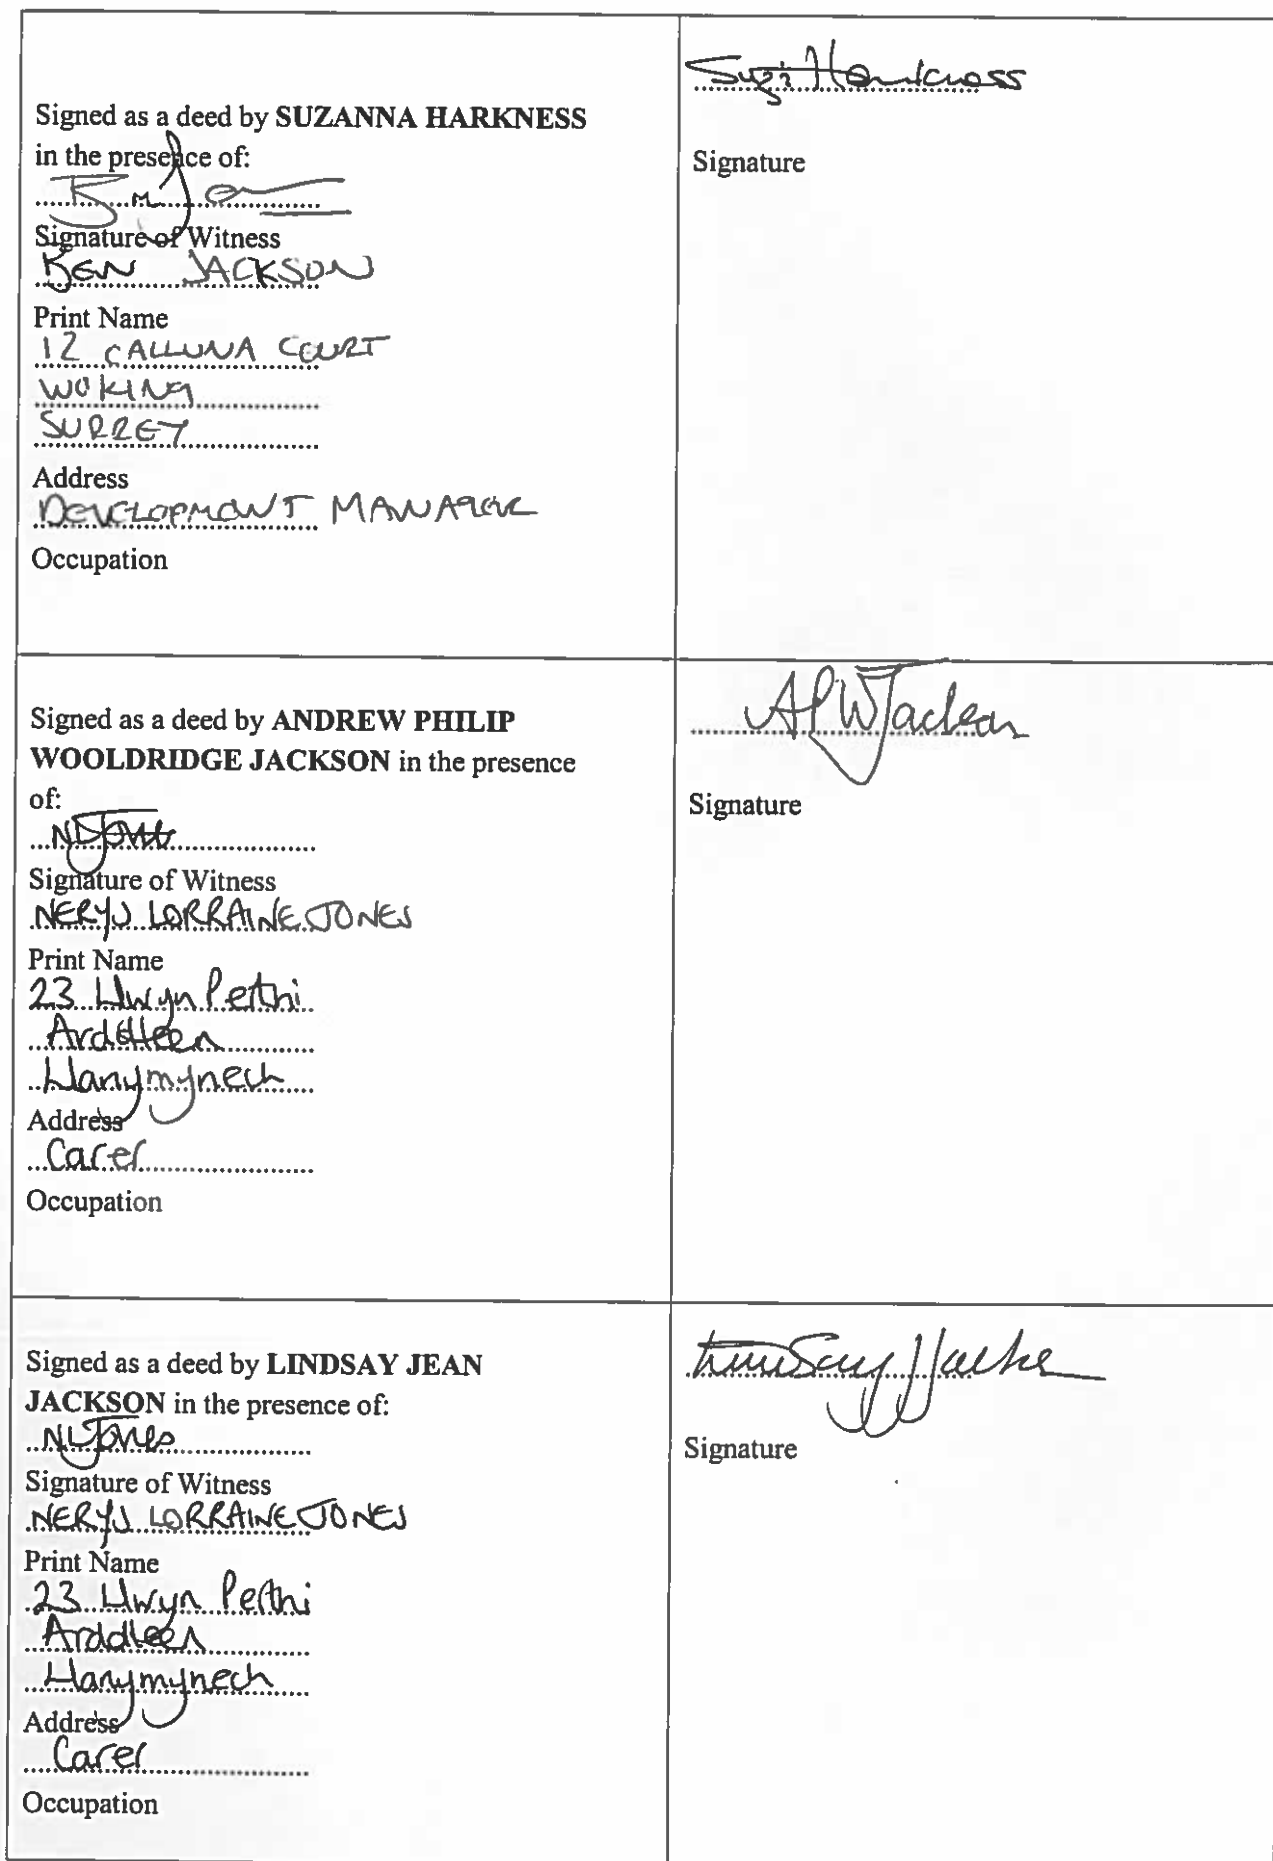 Suzi Harkness
Signed as a deed by SUZANNA HARKNESS
in the presence of:
Signature
Signature of Witness
BEN JACKSON
Print Name
12 CALLUNA COURT
WOKING
SURREY
Address
DEVELOPMENT MANAGER
Occupation
APWJackson
Signed as a deed by ANDREW PHILIP
WOOLDRIDGE JACKSON in the presence
of:
Signature
NLJones
Signature of Witness
NERYS LORRAINE JONES
Print Name
23 Llwyn Perthi
Arddleen
Llanymynech
Address
Carer
Occupation
Lindsay J Jackson
Signed as a deed by LINDSAY JEAN
JACKSON in the presence of:
NLJones
Signature
Signature of Witness
NERYS LORRAINE JONES
Print Name
23 Llwyn Perthi
Arddleen
Llanymynech
Address
Carer
Occupation